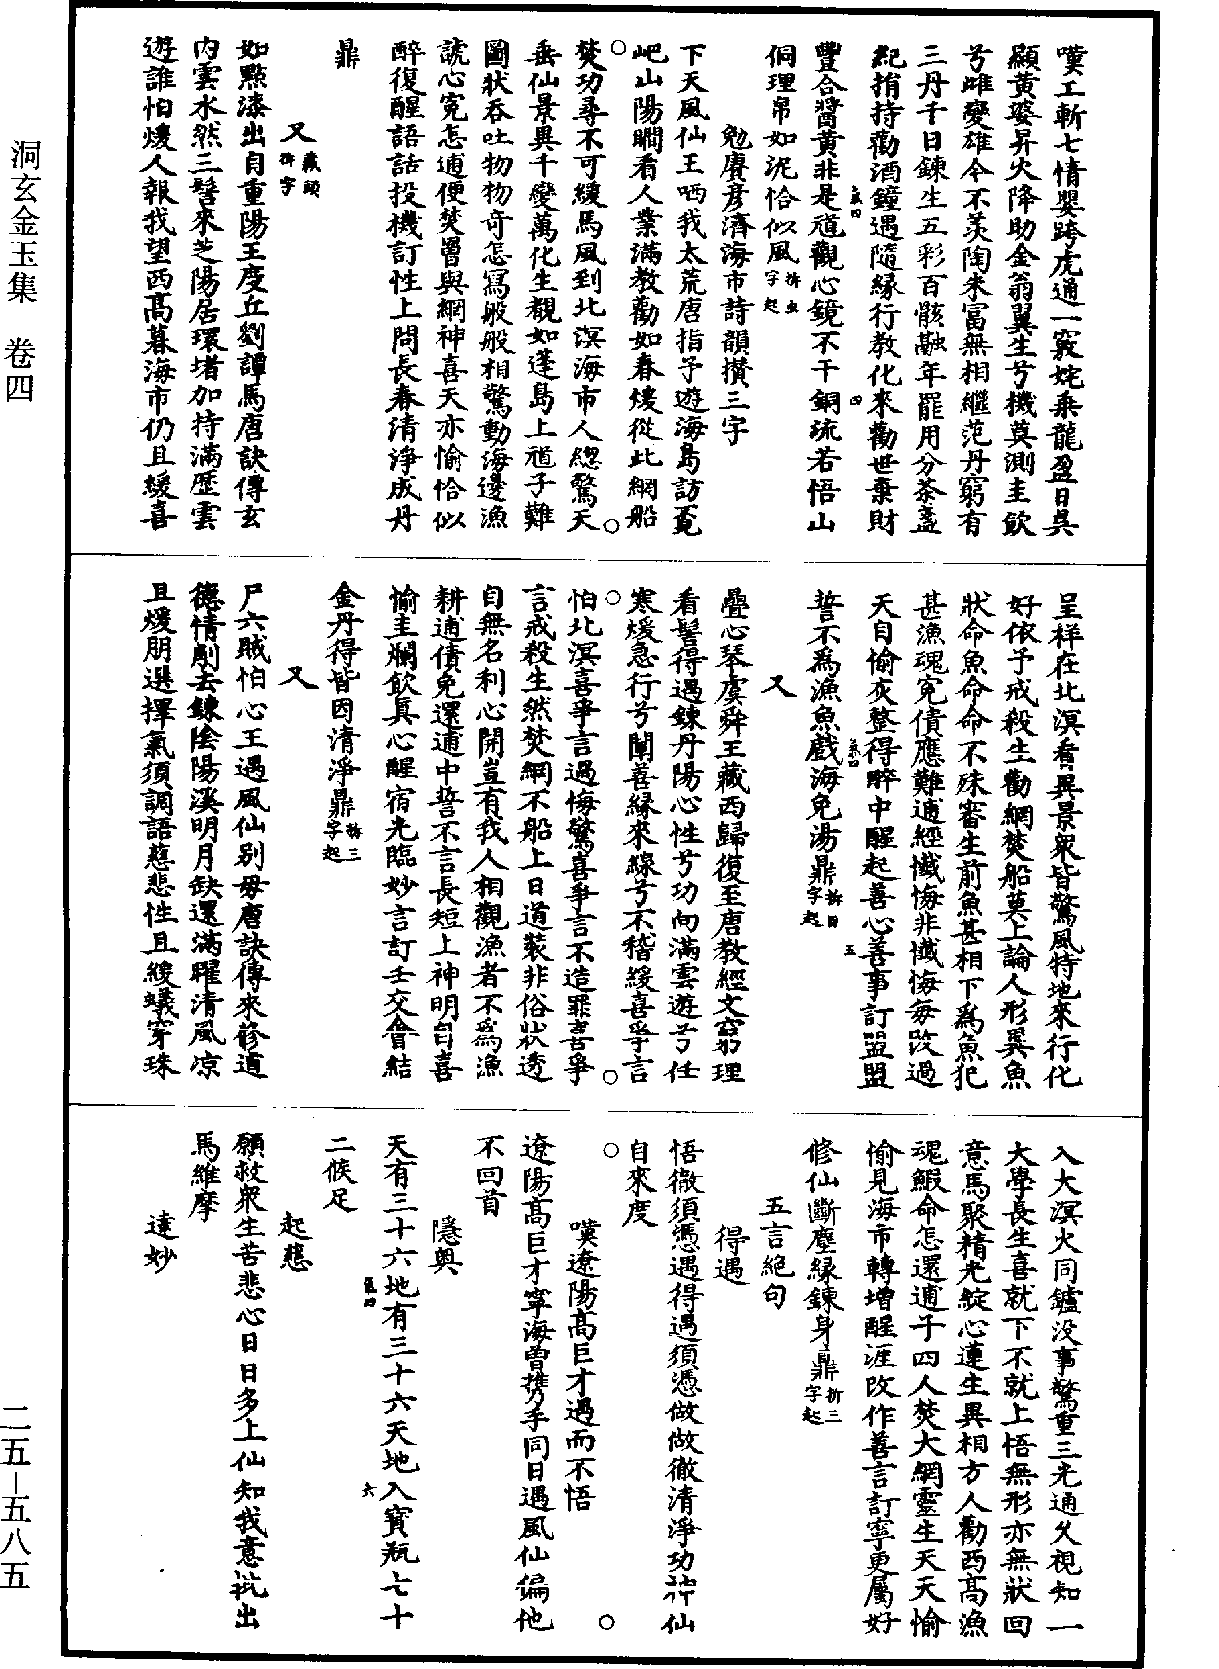 嘆工斬七情嬰跨虎通一竅姹乘龍盈日吳
顯黃婆昇火降助金翁翼生兮機莫測圭飲
兮雌變雄今不羨陶朱富無相繼范丹窮有
三丹千日鍊生五彩百骸融年罷用分茶盞
紀捐持勸酒鐘遇隨緣行教化來勸世棄財
豐合醬黃非是道觀心鏡不干銅琉若悟山
侗理帛如泥恰似風拆虫字起
勉賡彥濟海市詩韻攢三字
下天風仙王哂我太荒唐指予遊海島訪蓬
屺山陽瞷看人業滿教勸如春煖從此網船
焚功尋不可緩馬風到北溟海市人總驚天
垂仙景異千變萬化生覩如蓬島上道子難
圖狀吞吐物物奇怎寫般般相驚動海邊漁
諕心寃怎逋便焚罾與網神喜天亦愉恰似
醉復醒語話投機訂性上問長春清淨成丹
鼎
又藏頭拆字
如黠漆出自重陽王度丘劉譚馬唐訣傳玄
內雲水然三髻來芝陽居環堵加持滿歷雲
遊誰怕煖人報我望西高暮海市仍且緩喜
呈祥在北溟看異景眾皆驚風特地來行化
好依予戒殺生勸網焚船莫上論人形異魚
狀命魚命命不殊審生前魚甚相下為魚犯
甚漁魂寃債應難逋經懺悔非懺悔每改過
天自愉亥整得醉中醒起善心善事訂盟盟
誓不為漁魚戲海免湯鼎拆目字起
又
疊心琴虞舜王藏西歸復至唐教經文窮理
看髻得遇鍊丹陽心性兮功向滿雲遊兮任
寒煖急行兮闡善緣來緣兮不稽緩喜爭言
怕北溟喜爭言過悔驚喜爭言不造罪喜爭
言戒殺生然焚網不船上日道裝非俗狀透
自無名利心開豈有我人相觀漁者不為漁
耕逋債免還逋中誓不言長短上神明自喜
愉圭爛飲真心醒宿光臨妙言訂壬交會結
金丹得皆因清淨鼎拆三字起
又
尸六賊怕心王遇風仙別毋唐訣傳來修道
德情剮去鍊陰陽溪明月缺還滿曜清風凉
且煖朋選擇氣須調語慈悲性且緩蟻穿珠
入大溟火同鑪没事驚重三光通父視知一
大學長生喜就下不就上悟無形亦無狀回
意馬聚精光綻心蓮生異相方人勸西高漁
魂鰕命怎還逋子四人焚大網靈生天天愉
愉見海市轉增醒涯改作善言訂寧更屬好
修仙斷塵緣鍊身鼎拆三字起
五言絕句
得遇
悟徹須憑遇得遇須憑做做徹清淨功行仙
自來度
嘆遼陽高巨才遇而不悟
遼陽高巨才寧海曾攜手同日遇風仙偏他
不回首
隱奧
天有三十六地有三十六天地入寶瓶七十
二候足
起慈
願救眾生苦悲心日日多上仙知我意批出
馬維摩
達妙
洞玄金玉集 卷四
二五—五八五